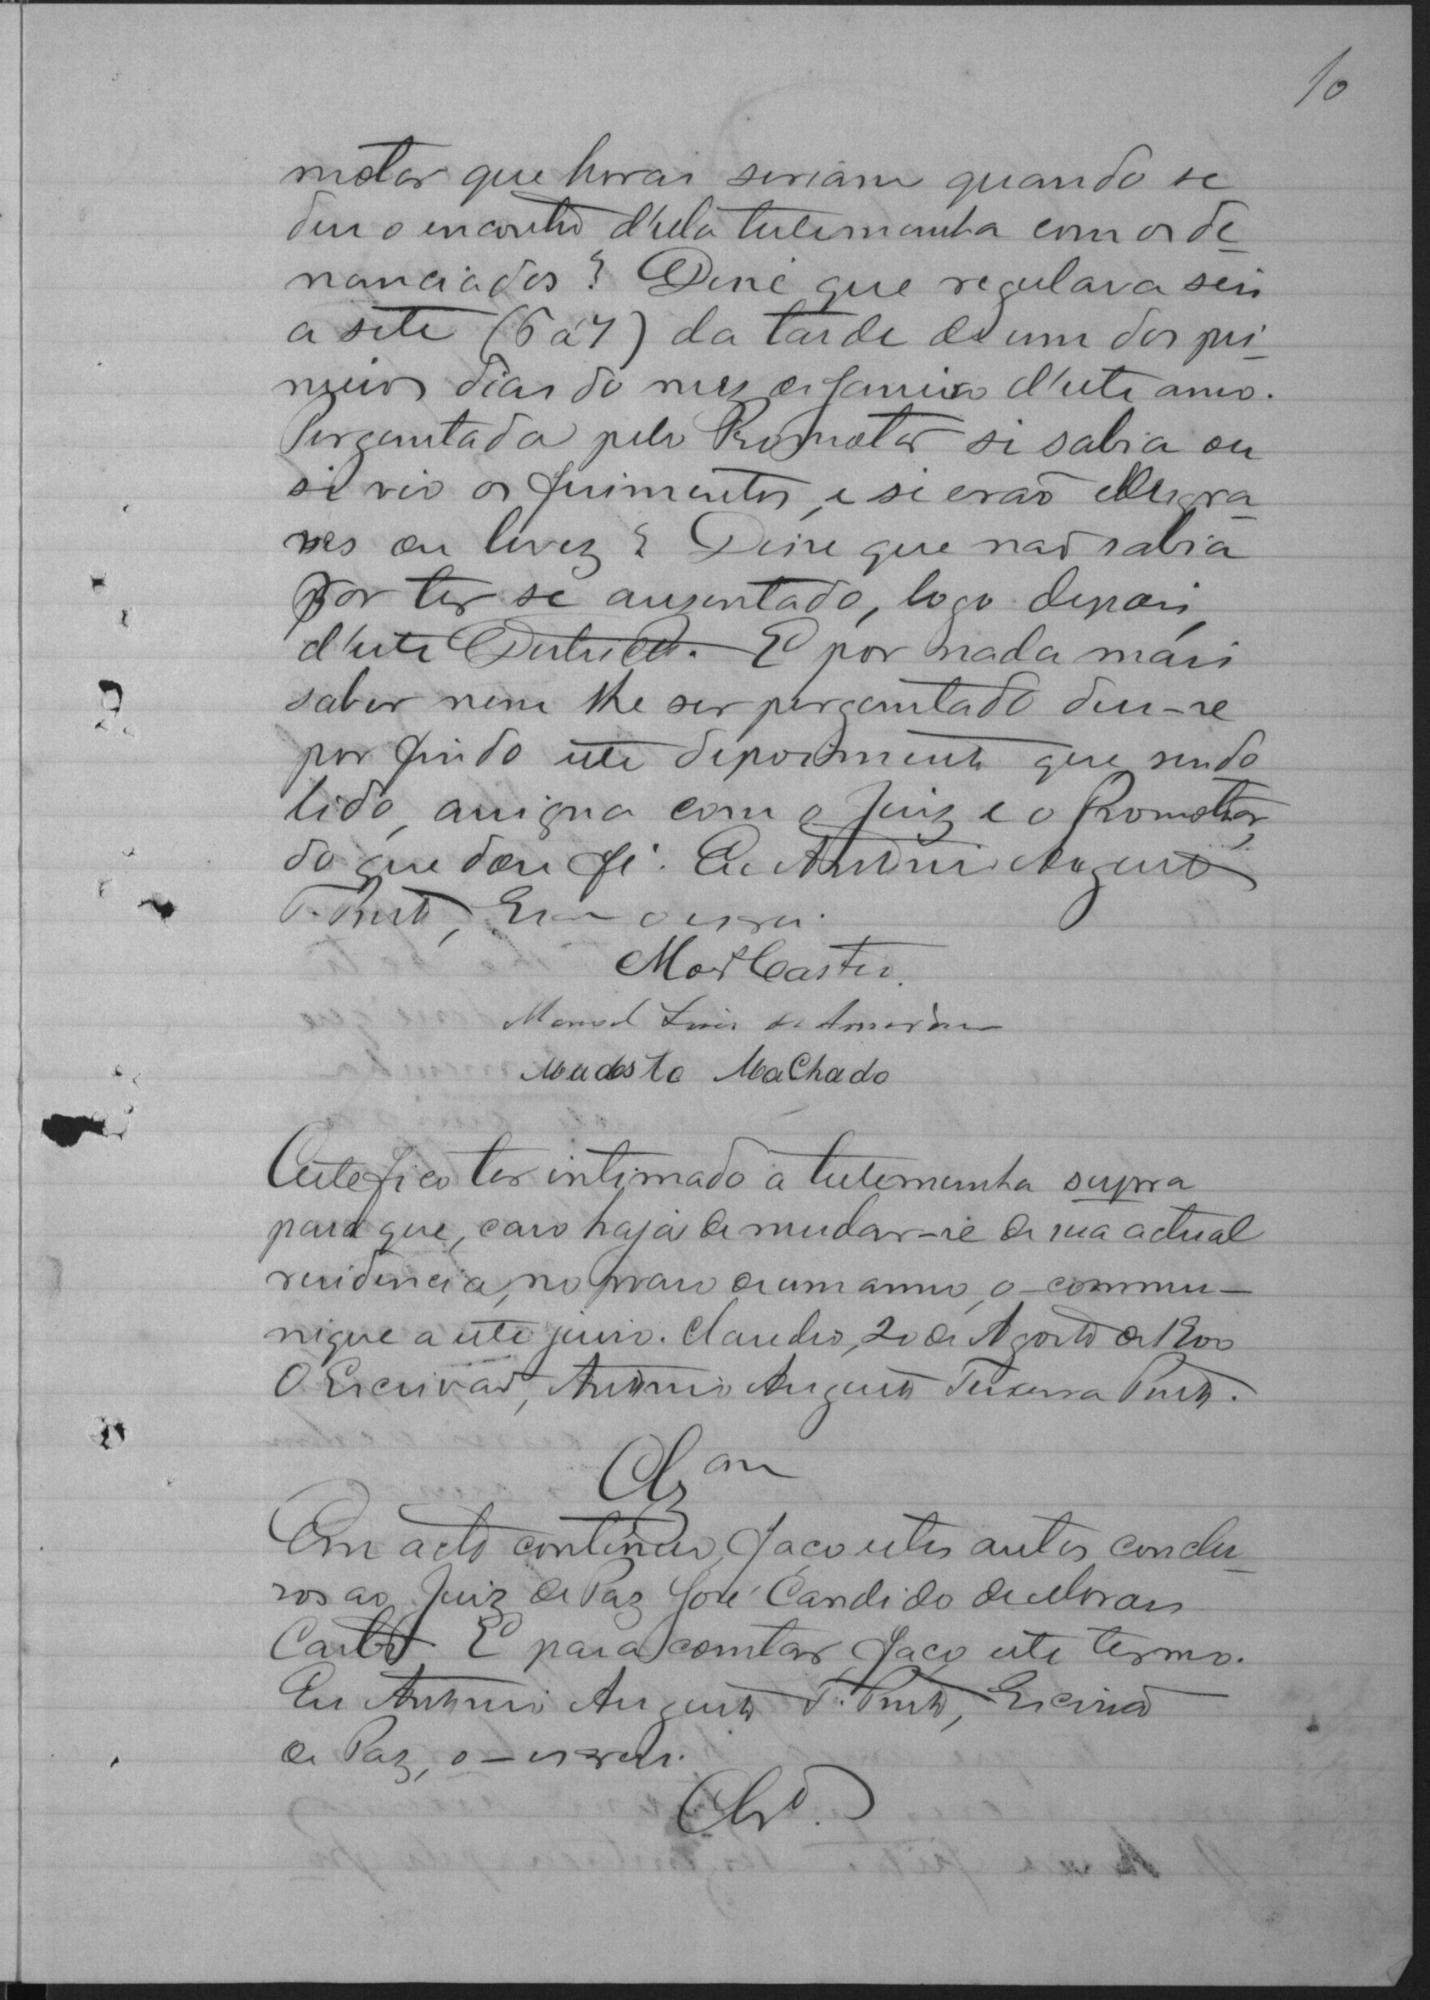 10
motor que horas seriam quando se
deu o encontro d'ela testemunha com os de-
nunciados? Disse que regulava seis
a sete (6 á 7) da tarde de um dos pri-
meiros dias do mez de Janeiro d'este anno.
Perguntada pelo Promotor si sabia ou
si vio os ferimentos, e si erão gra-
ves ou levez? Disse que não sabia
por ter se ausentado, logo depois,
d'este Districto. E por nada mais
saber nem lhe ser perguntado deu-se
por findo este depoimento que sendo
lido, assigna com o Juiz e o Promotor,
do que dou fé. Eu Antonio Augusto
T. Pinto, Escr. o escrevi.
Mor.es Castro.
Manoel Luis de Amorim
Modesto Machado
Certefico ter intimado a testemunha supra
para que, caso haja de mudar-se de sua actual
residencia, no praso de um anno, o-commu-
nique a este juiso. Claudio, 20 de Agosto de 1900
O Escrivão, Antonio Augusto Teixeira Pinto.
Clzam
Em acto continuo, faço estes autos conclu-
sos ao Juiz de Paz José Candido de Moraes
Castro. E para constar, faço este termo.
Eu Antonio Augusto T. Pinto, Escrivão
de Paz, o-escrevi.
Clso.